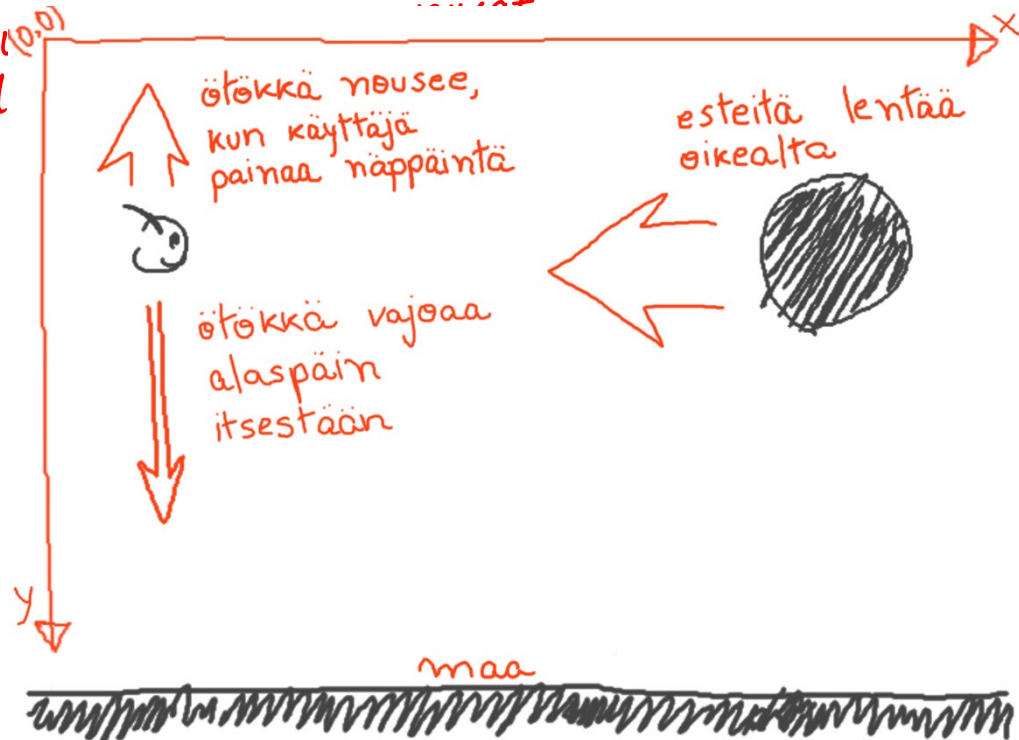 (0,0)
x
ötökkä nousee,
kun käyttäjä
painaa näppäintä
esteitä lentää
oikealta
ötökkä vajoaa
alaspäin
itsestään
y
maa